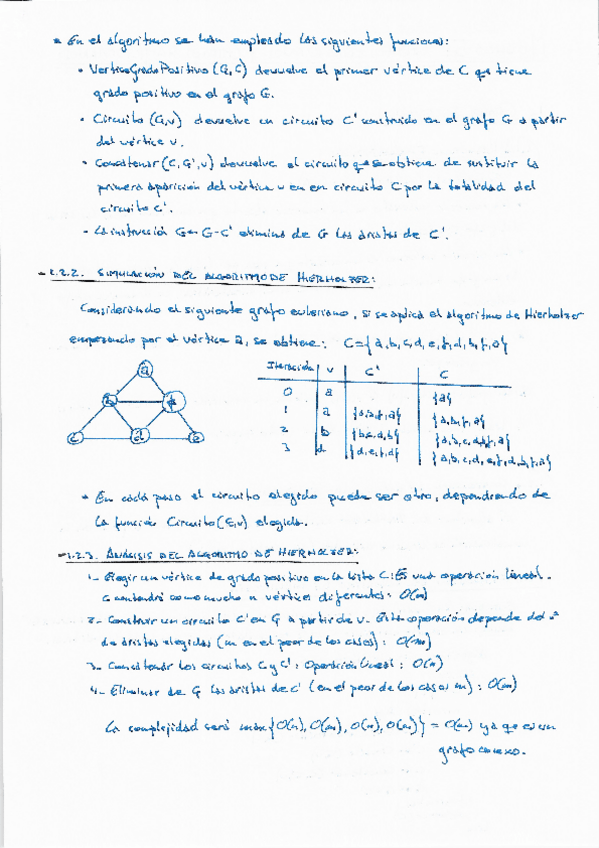 • En el algoritmo se han empleado las siguientes funciones:
• VerticeGradoPositivo (G,C) devuelve el primer vértice de C que tiene
grado positivo en el grafo G.
• Circuito (G,v) devuelve un circuito C' construido en el grafo G a partir
del vértice v.
• Concatenar (C,C',v) devuelve el circuito que se obtiene de sustituir la
primera aparición del vértice v en en circuito C por la totalidad del
circuito C'.
• La instrucción G=G-C' elimina de G las aristas de C'.
1.2.2. SIMULACIÓN DEL ALGORITMO DE HIERHOLZER:
Considerando el siguiente grafo euleriano, si se aplica el algoritmo de Hierholzer
empezando por el vértice a, se obtiene: C={a,b,c,d,e,f,d,b,f,a}
a
b f
c d e
Iteración v C' C
0 a {a}
1 a {a,b,f,a} {a,b,f,a}
2 b {b,c,d,b} {a,b,c,d,b,f,a}
3 d {d,e,f,d} {a,b,c,d,e,f,d,b,f,a}
• En cada paso el circuito elegido puede ser otro, dependiendo de
la función Circuito(G,v) elegida.
1.2.3. ANÁLISIS DEL ALGORITMO DE HIERHOLZER:
1- Elegir un vértice de grado positivo en la lista C: Es una operación lineal.
C contendrá como mucho n vértices diferentes: O(n)
2- Construir un circuito C' en G a partir de v. Esta operación depende del nº
de aristas elegidas (m en el peor de los casos): O(m)
3- Concatenar los circuitos C y C': Operación lineal: O(n)
4- Eliminar de G las aristas de C' (en el peor de los casos m): O(m)
La complejidad será max{O(n), O(m), O(n), O(m)} = O(m) ya que es un
grafo conexo.